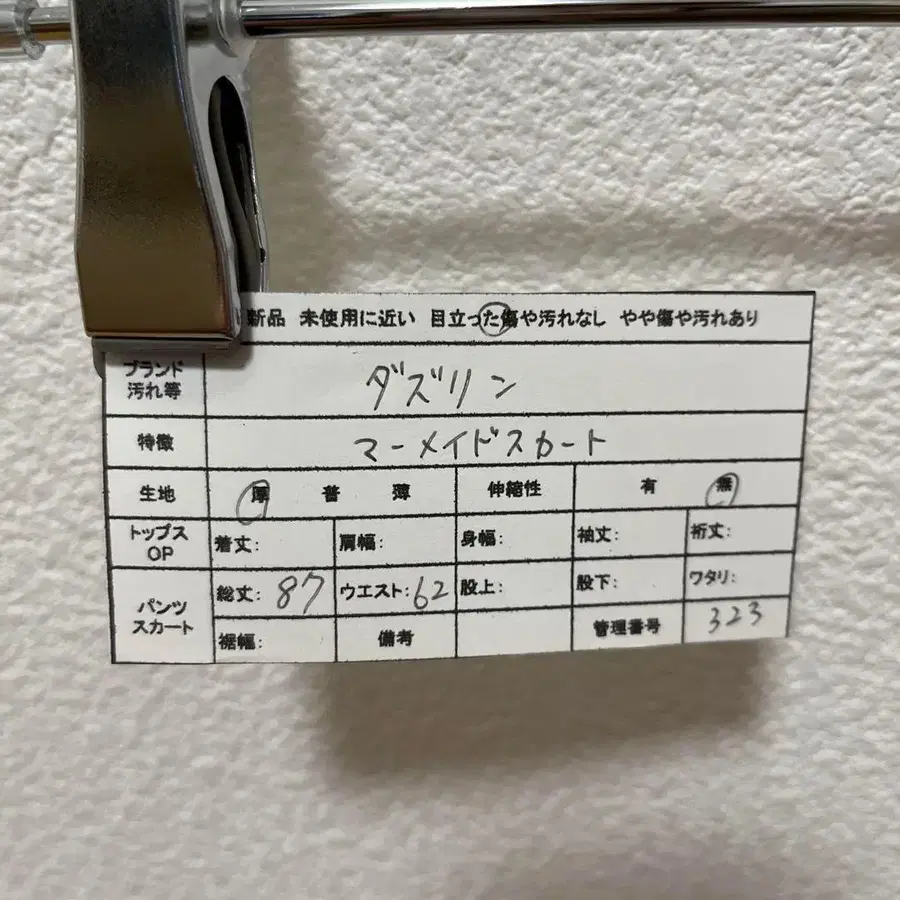 新品 未使用に近い 目立った傷や汚れなし やや傷や汚れあり
ブランド
汚れ等
ダズリン
特徴
マーメイドスカート
生地 厚 普 薄 伸縮性 有 無
トップス
OP
着丈: 肩幅: 身幅: 袖丈: 裄丈:
パンツ
スカート
総丈: 87 ウエスト: 62 股上: 股下: ワタリ:
裾幅: 備考 管理番号 323